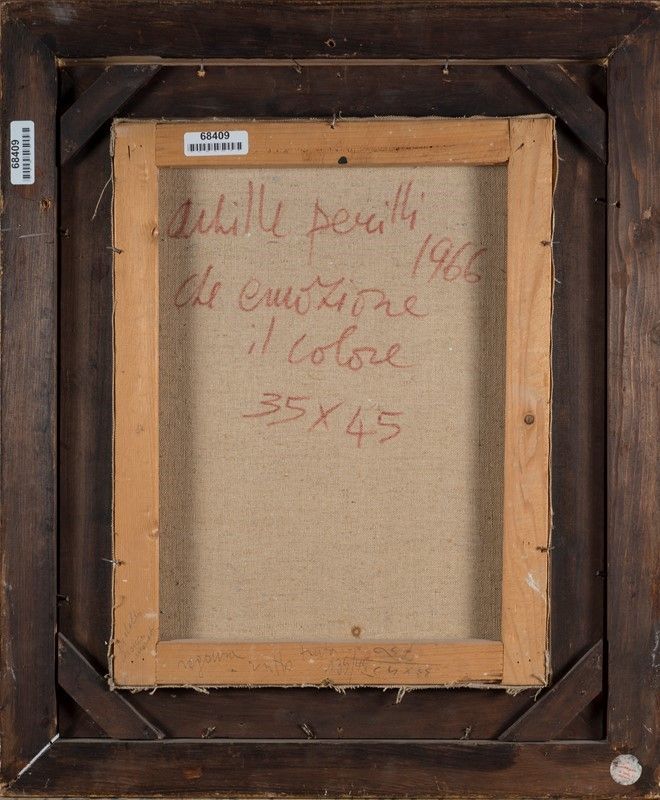 68409
68409
achille perilli
1966
che emozione
il colore
35x45